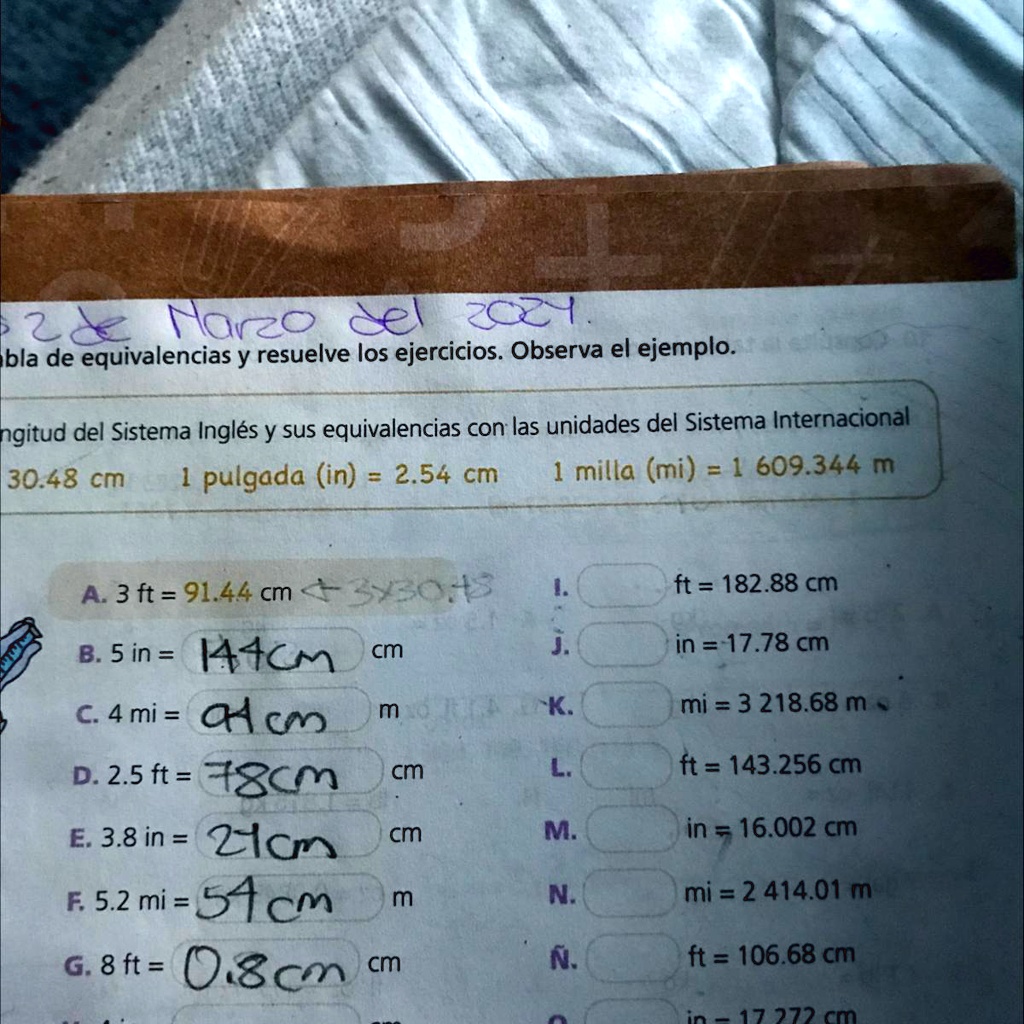 2 de Marzo del 2024.
abla de equivalencias y resuelve los ejercicios. Observa el ejemplo.
ngitud del Sistema Inglés y sus equivalencias con las unidades del Sistema Internacional
30.48 cm 1 pulgada (in) = 2.54 cm 1 milla (mi) = 1 609.344 m
A. 3 ft = 91.44 cm ← 3x30.48
B. 5 in = 144cm cm
C. 4 mi = cm m
D. 2.5 ft = 78cm cm
E. 3.8 in = 21cm cm
F. 5.2 mi = 54cm m
G. 8 ft = 0.8cm cm
cm
I. ft = 182.88 cm
J. in = 17.78 cm
K. mi = 3 218.68 m
L. ft = 143.256 cm
M. in = 16.002 cm
N. mi = 2 414.01 m
Ñ. ft = 106.68 cm
O. in = 17.272 cm